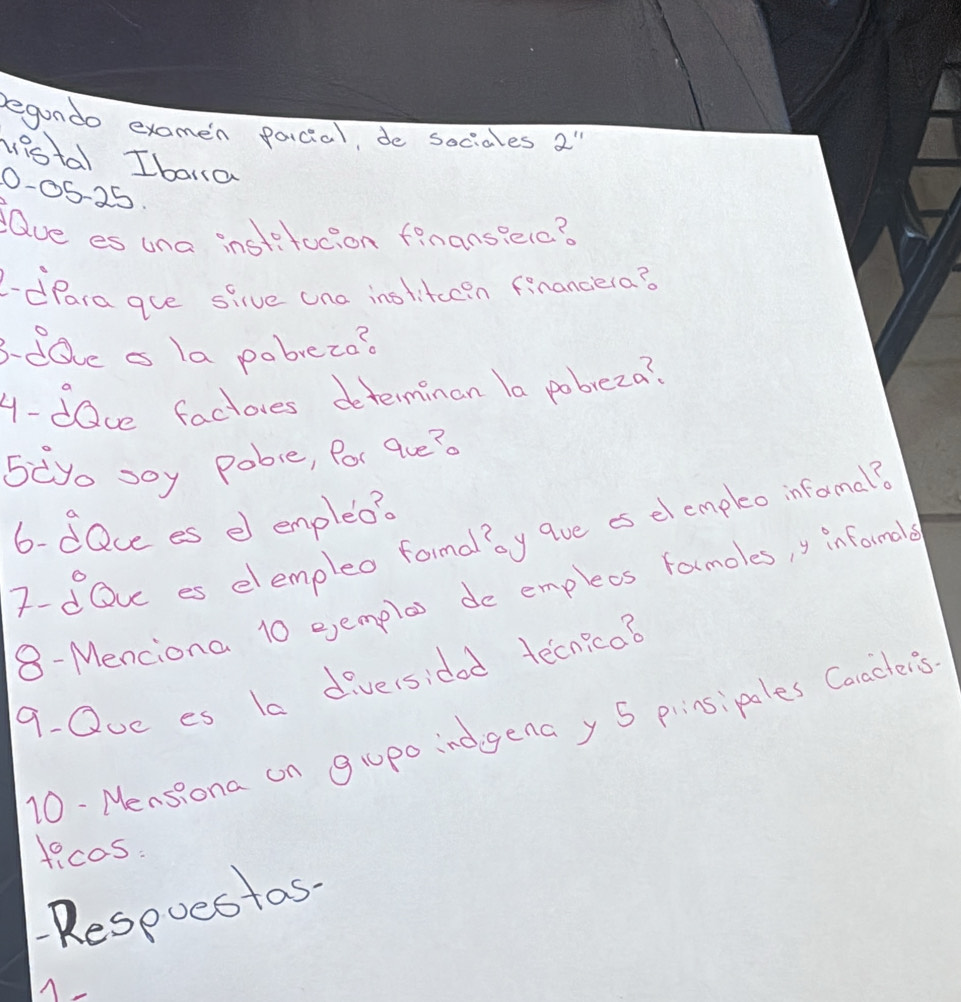 Segundo examén parcial, de sociales 2"
Cristal Ibarra
0-05-25.
¿Que es una institucion finansiera?
2-¿Para que sirve una institucin financiera?
3-¿Que es la pobreza?
4-¿Que factores determinan la pobreza?
5¿yo soy pobre, Por que?
6-¿Que es el empléo?
7-¿Que es el empleo formal? y que es el empleo infomal?
8-Menciona 10 ejemplos de empleos formoles, y informals
9-Que es la diversidad técnica?
10-Mensiona un grupo indigena y 5 prinsipales Carácteris-
ticas.
-Respuestas-
1-